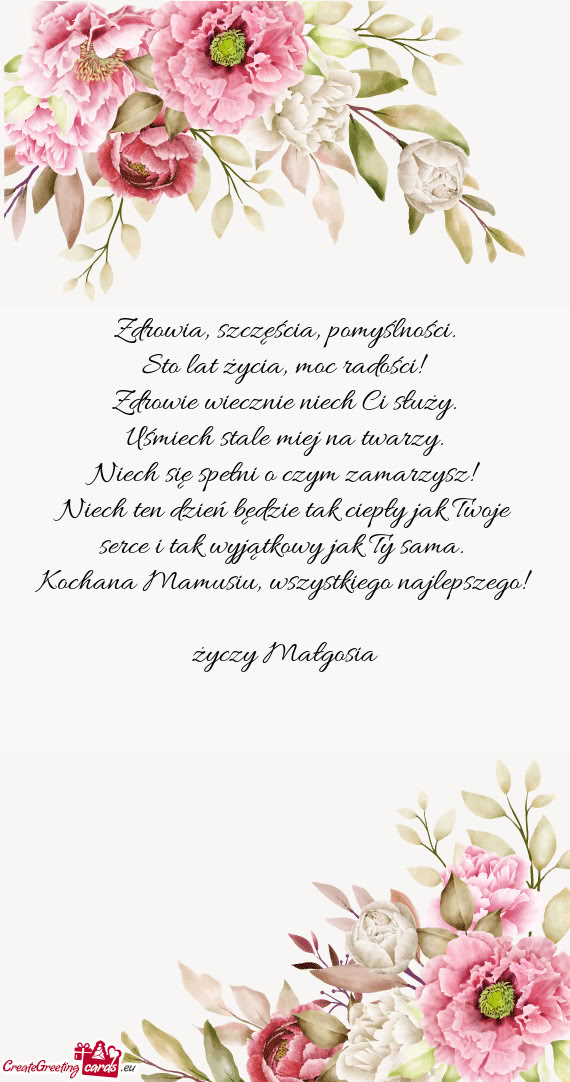 Zdrowia, szczęścia, pomyślności.
Sto lat życia, moc radości!
Zdrowie wiecznie niech Ci służy.
Uśmiech stale miej na twarzy.
Niech się spełni o czym zamarzysz!
Niech ten dzień będzie tak ciepły jak Twoje
serce i tak wyjątkowy jak Ty sama.
Kochana Mamusiu, wszystkiego najlepszego!
życzy Małgosia
CreateGreeting cards .eu